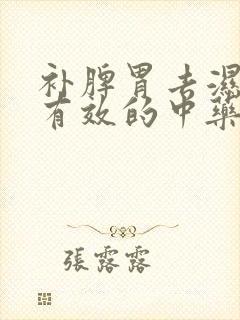 补脾胃去湿
有效的中药
張露露